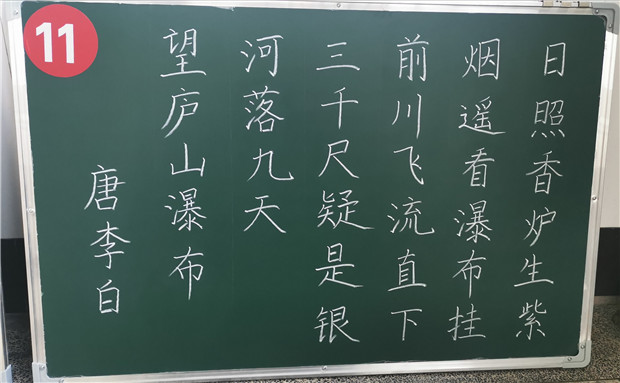 11
日照香炉生紫
烟遥看瀑布挂
前川飞流直下
三千尺疑是银
河落九天
望庐山瀑布
唐李白